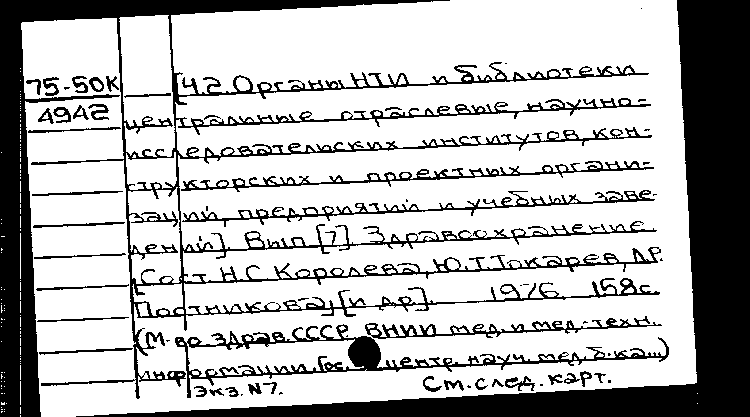 75-50К [42. Органы НТИ и библиотеки
4942 центральные отраслевые, научно-
исследовательских институтов, кон-
структорских и проектных органи-
заций, предприятий и учебных заве-
дений]. Вып [7]. Здравоохранение
[Сост. Н.С Королева, Ю.Т.Токарев, Л.Р.
Постникова, [и др]. 1976. 158с.
(М-во здрав. СССР. ВНИИ мед. и мед.-техн.
информации. Гос. центр. науч. мед. б-ка...)
Экз. N7. См. след. карт.